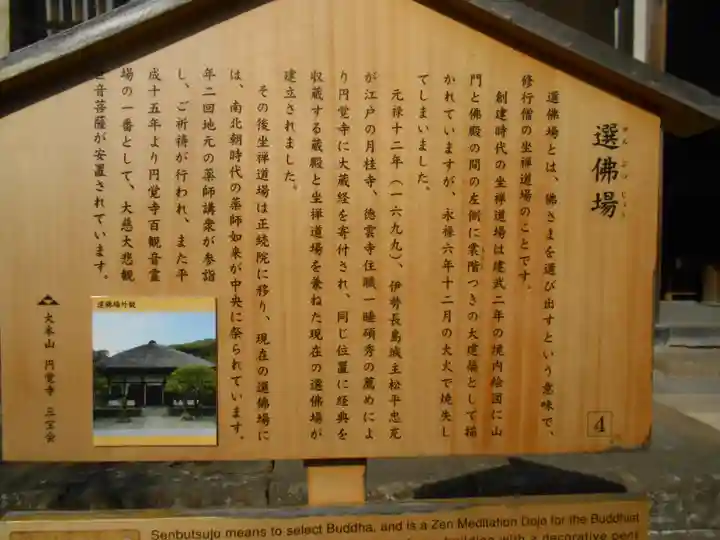 選佛場
せんぶつじょう
選佛場とは、佛さまを選び出すという意味で、
修行僧の坐禅道場のことです。
創建時代の坐禅道場は建武二年の境内絵図に山
門と佛殿の間の左側に裳階つきの大建築として描
かれていますが、永禄六年十二月の大火で焼失し
てしまいました。
元禄十二年（一六九九）、伊勢長島城主松平忠充
が江戸の月桂寺、徳雲寺住職一睡碩秀の薦めによ
り円覚寺に大蔵経を寄付され、同じ位置に経典を
収蔵する蔵殿と坐禅道場を兼ねた現在の選佛場が
建立されました。
その後坐禅道場は正続院に移り、現在の選佛場に
は、南北朝時代の薬師如来が中央に祭られています。
年二回地元の薬師講衆が参詣
し、ご祈祷が行われ、また平
成十五年より円覚寺百観音霊
場の一番として、大慈大悲観
世音菩薩が安置されています。
選佛場外観
大本山 円覚寺 三宝会
4
Senbutsujo means to select Buddha, and is a Zen Meditation Dojo for the Buddhist
building with a decorative pent